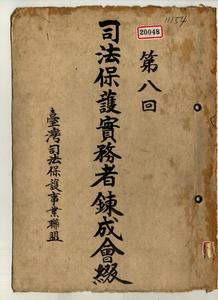 11154
20048
第八回
司法保護實務者錬成會綴
臺灣司法保護事業聯盟